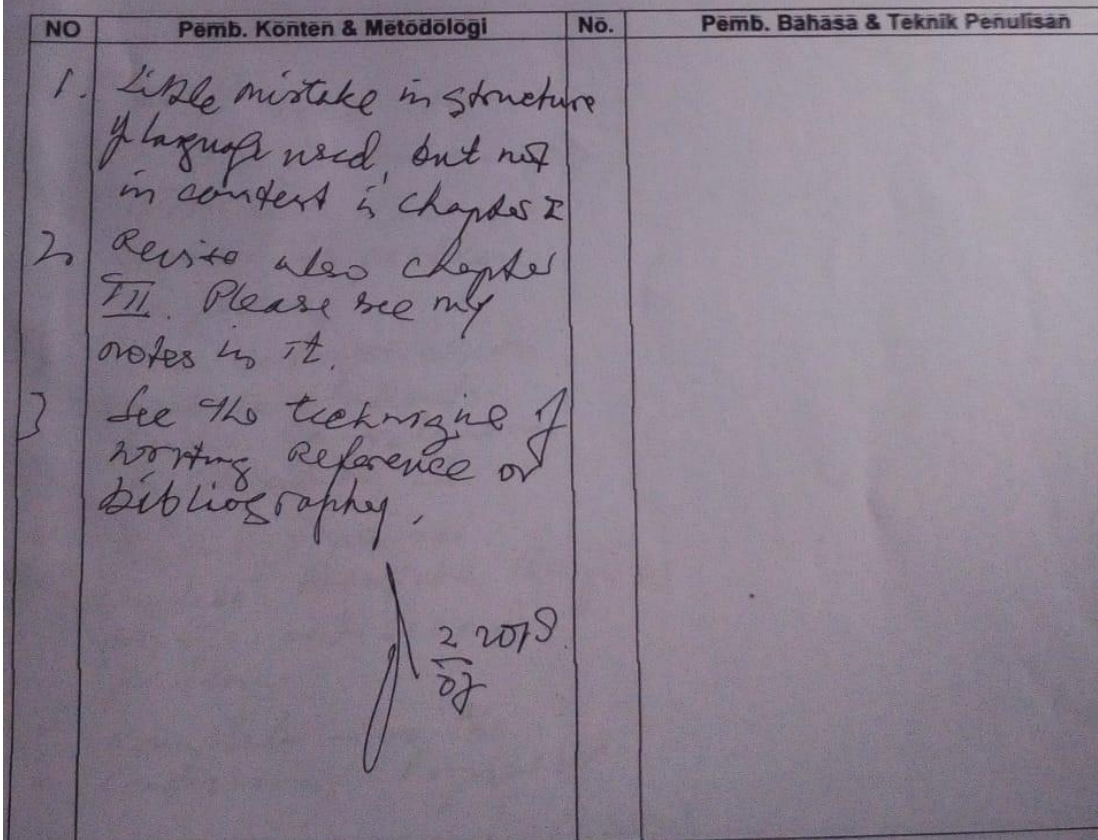 NO Pemb. Konten & Metodologi No. Pemb. Bahasa & Teknik Penulisan
1. Little mistake in structure
of language used, but not
in content in chapter I
2. Revise also chapter
III. Please see my
notes in it.
3 See the technique of
writing Reference or
bibliography.
2 2018